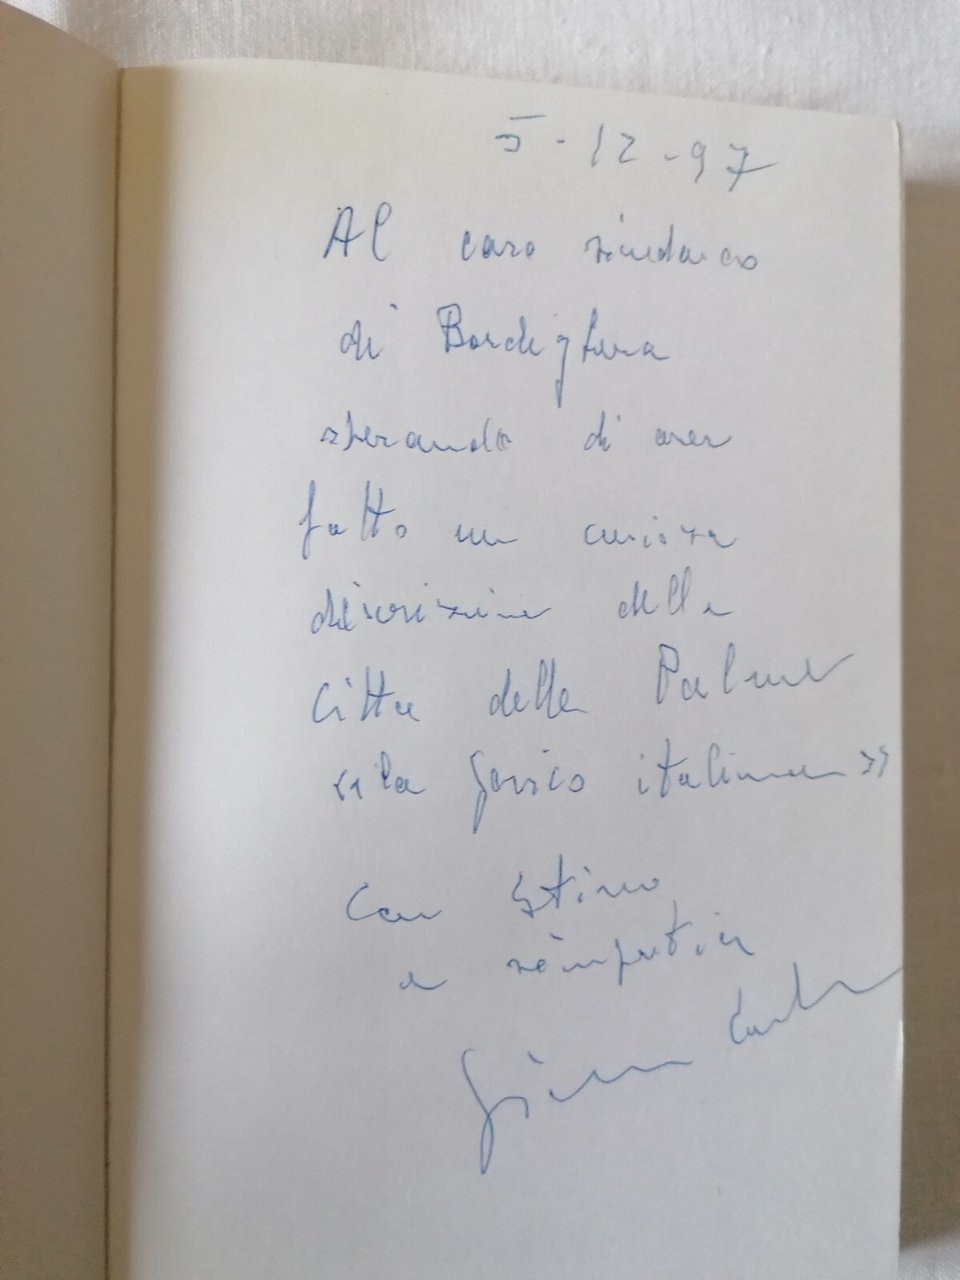 5-12-97
Al caro sindaco
di Bordighera
sperando di aver
fatto un curiosa
discrizione della
Città delle Palme
« la italiana »
Con stima
e simpatia